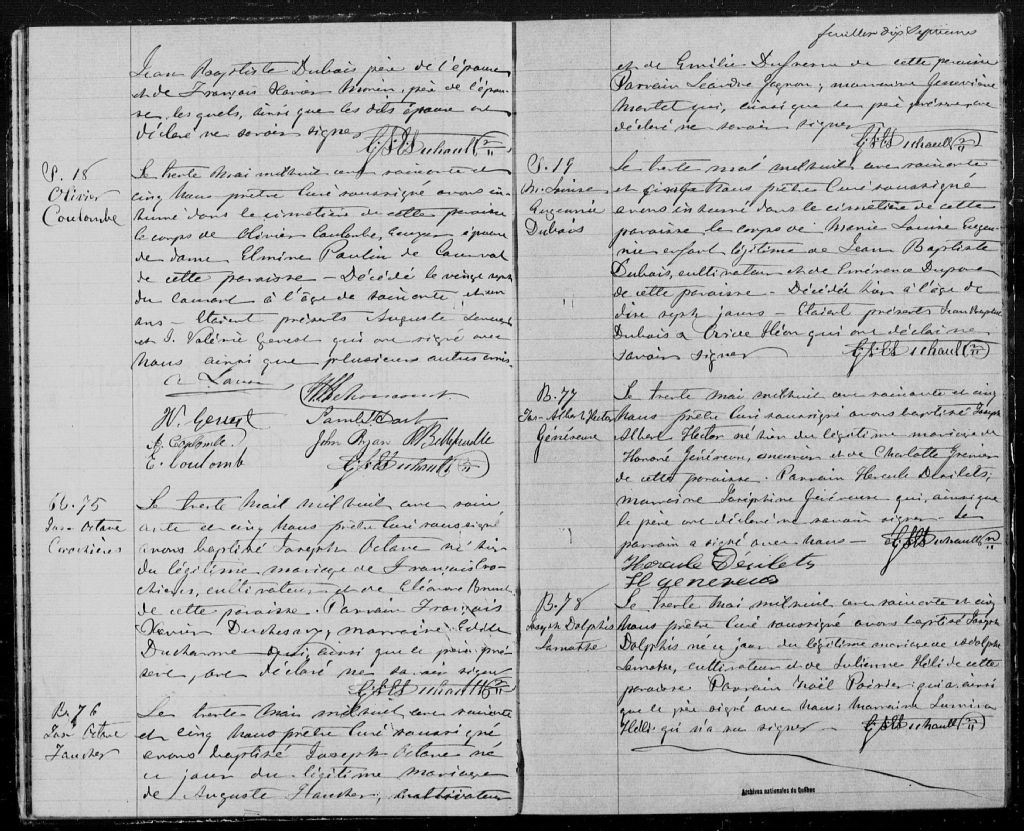 Jean Baptiste Dubois père de l'épouse
et de François Xavier Morin, père de l'épou-
se, lesquels, ainsi que les dits époux ont
déclaré ne savoir signer
S. 18
Olivier
Coulombe
Le trente Mai mil huit cent soixante et
cinq Nous prêtre Curé soussigné avons in-
humé dans le cimetière de cette paroisse
le corps de Olivier Coulombe, époux
de dame Elmire Paulin de Courval
de cette paroisse - Décédé le vingt sept
du courant à l'âge de soixante et un
ans - Etaient présents Auguste
et S. Valérie Genest qui ont signé avec
nous ainsi que plusieurs autres
W. Genest
A. Coulombe
E. Coulomb
John Ryan
B. 75
Jos. Octave
Crochières
Le trente Mai mil huit cent soix
ante et cinq Nous prêtre Curé soussigné
avons baptisé Joseph Octave né hier
du légitime mariage de François Cro-
chières, cultivateur, et de Eléonore
de cette paroisse. Parrain François
Xavier Duchesnay, marraine Edile
Ducharme qui, ainsi que le père pré-
sent, ont déclaré ne savoir signer
B. 76
Jos. Octave
Faucher
Le trente Mai mil huit cent soixante
et cinq Nous prêtre Curé soussigné
avons baptisé Joseph Octave né
ce jour du légitime mariage
de Auguste Faucher, cultivateur
feuillet dix Septième
et de Emilie Dufresne de cette paroisse
Parrain Léandre Gagnon, marraine Geneviève
Martel qui, ainsi que le père présent ont
déclaré ne savoir signer
S. 19
M. Louise
Eugénie
Dubois
Le trente Mai mil huit cent soixante
et cinq Nous prêtre Curé soussigné
avons inhumé dans le cimetière de cette
paroisse le corps de Marie Louise Eugé-
nie enfant légitime de Jean Baptiste
Dubois, cultivateur et de Emérence
de cette paroisse - Décédée hier à l'âge de
dix sept jours - Etaient présents Jean Baptiste
Dubois & qui ont déclaré ne
savoir signer
B. 77
Jos. Albert Hector
Généreux
Le trente Mai mil huit cent soixante et cinq
Nous prêtre Curé soussigné avons baptisé Joseph
Albert Hector né hier du légitime mariage de
Honoré Généreux, et de Charlotte Grenier
de cette paroisse. Parrain Hercule Désilets;
marraine Joséphine Généreux qui, ainsi que
le père ont déclaré ne savoir signer - Le
parrain a signé avec nous -
Hercule Désilets
H genereux
B. 78
Joseph Dolphis
Lamothe
Le trente Mai mil huit cent soixante et cinq
Nous prêtre Curé soussigné avons baptisé Joseph
Dolphis né ce jour du légitime mariage de Adolphe
Lamothe, cultivateur et de Julienne de cette
paroisse Parrain Noël Poirier qui a ainsi
que le père signé avec nous; marraine
qui n'a su signer
Archives nationales du Québec